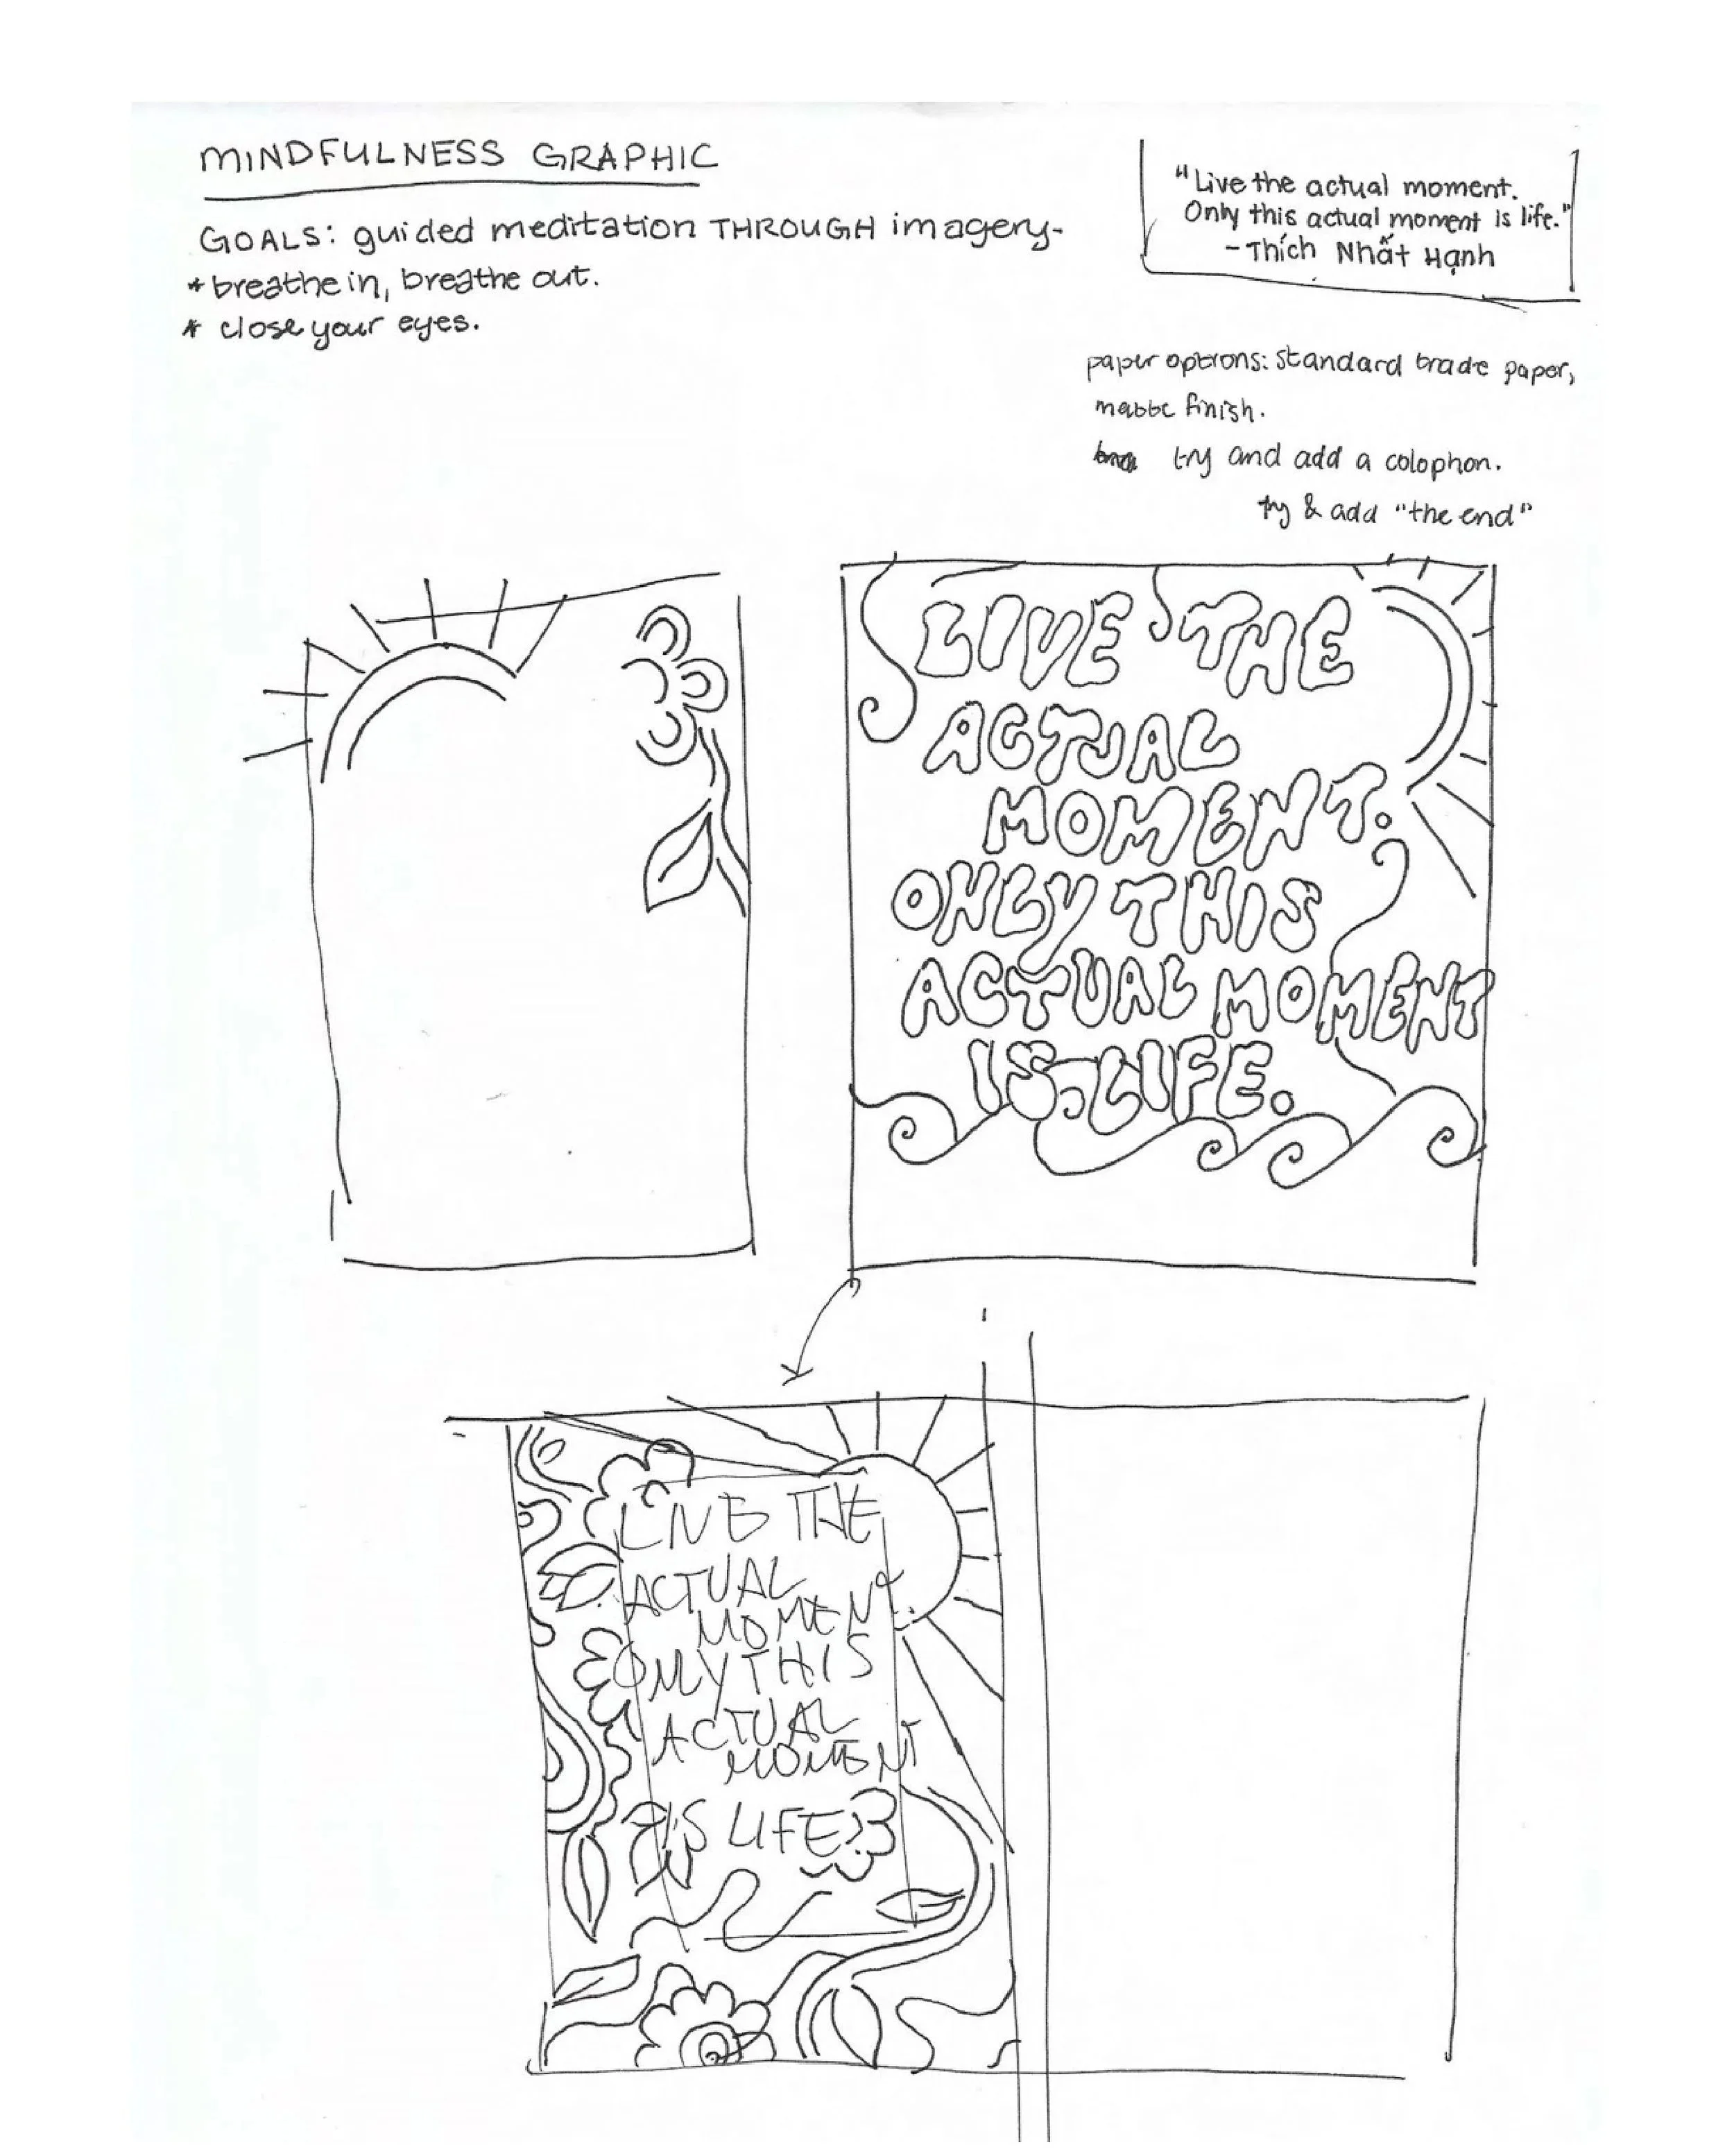 MINDFULNESS GRAPHIC
GOALS: guided meditation THROUGH imagery-
* breathe in, breathe out.
* close your eyes.
"Live the actual moment.
Only this actual moment is life."
- Thích Nhất Hạnh
paper options: standard trade paper,
matte finish.
try and add a colophon.
try & add "the end"
LIVE THE
ACTUAL
MOMENT.
ONLY THIS
ACTUAL MOMENT
IS LIFE.
LIVE THE
ACTUAL
MOMENT.
ONLY THIS
ACTUAL
MOMENT
IS LIFE.